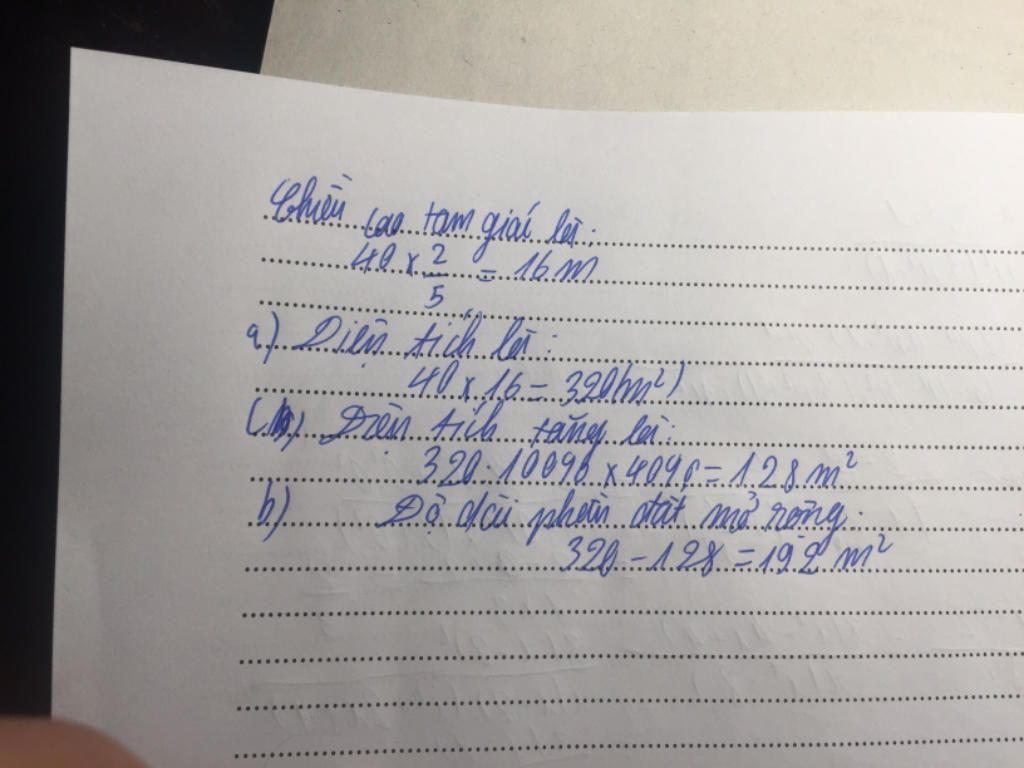 Chiều cao tam giác là:
40 x 2/5 = 16 m
a) Diện tích là:
40 x 16 = 320(m²)
Diện tích tăng là:
320 : 100% x 40% = 128 m²
b) Độ dài phần đất mở rộng:
320 - 128 = 192 m²